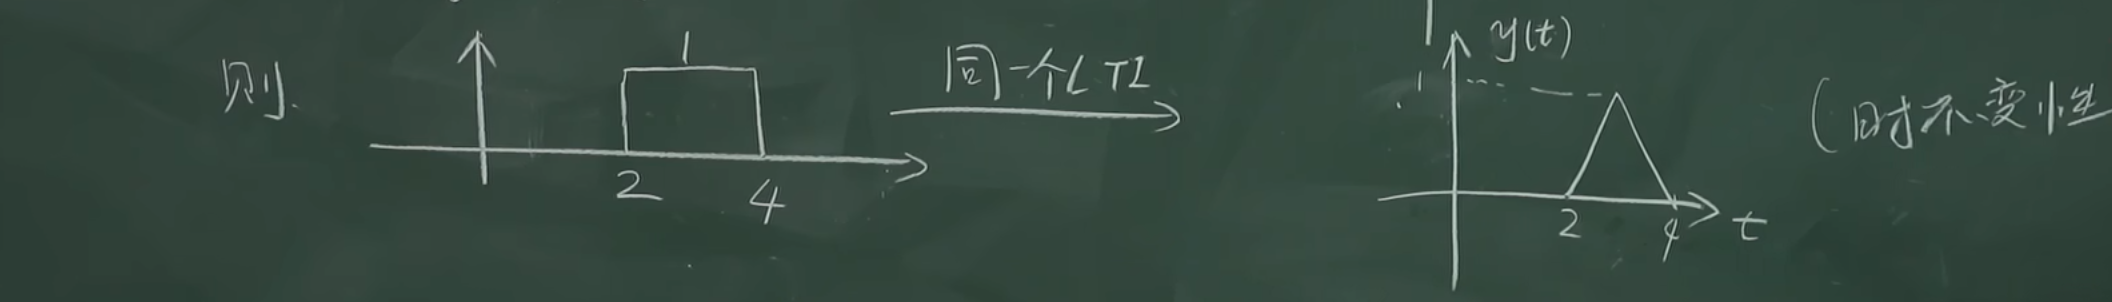 则
1
2
4
同一个LTI
y(t)
1
2
4
t
(时不变性